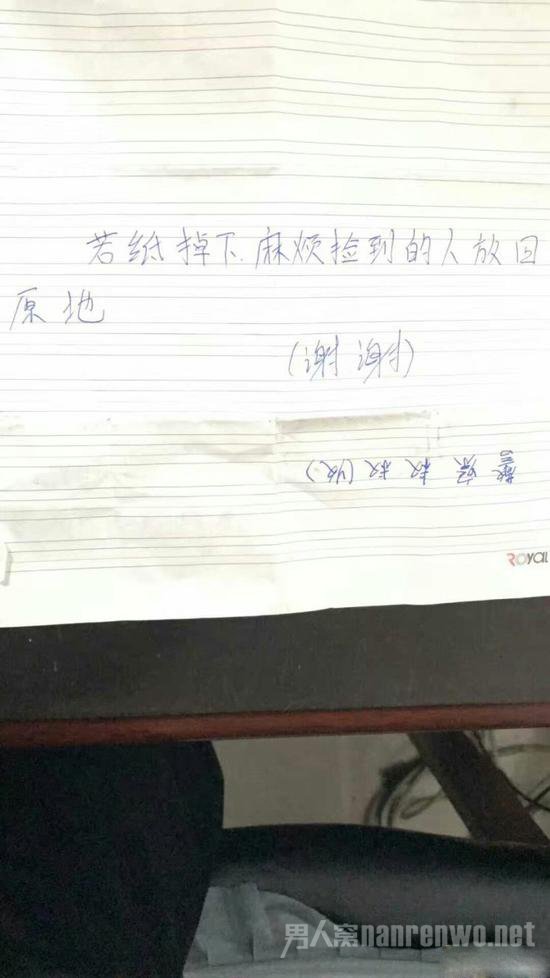 若纸掉下.麻烦捡到的人放回
原地
(谢谢)
警察叔叔(收)
ROYAL
男人窝nanrenwo.net